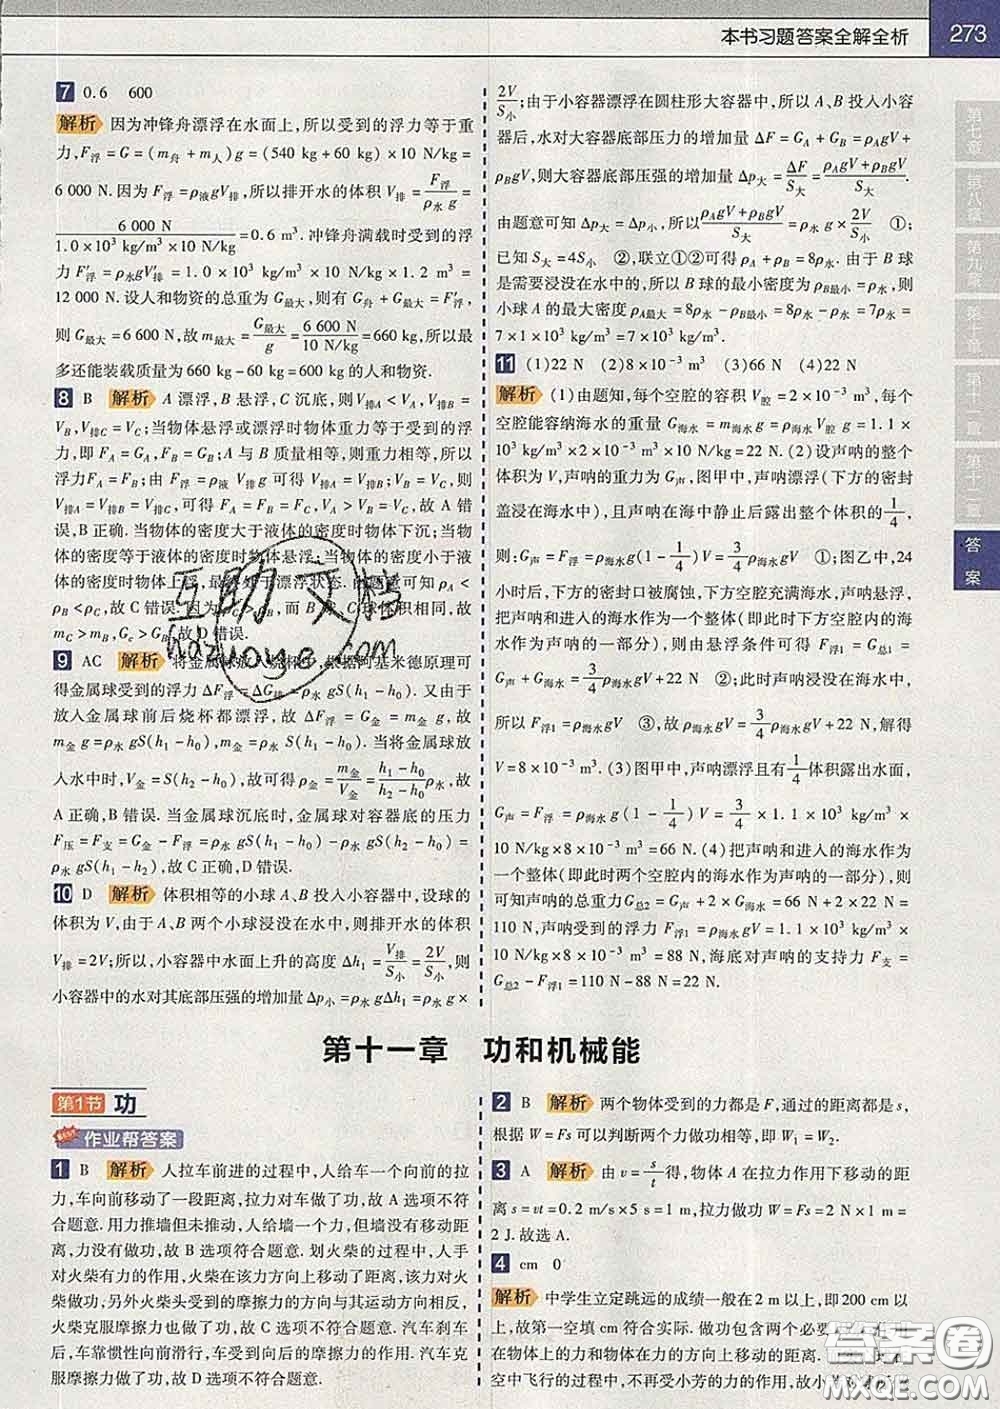 本书习题答案全解全析 273
7 0.6 600
解析 因为冲锋舟漂浮在水面上,所以受到的浮力等于重
力,F浮=G=(m舟+m人)g=(540 kg+60 kg)×10 N/kg=
6 000 N. 因为 F浮=ρ液gV排,所以排开水的体积 V排=F浮/(ρ水 g)=
6 000 N/(1.0×10³ kg/m³×10 N/kg)=0.6 m³. 冲锋舟满载时受到的浮
力 F′浮=ρ水gV′排=1.0×10³ kg/m³×10 N/kg×1.2 m³=
12 000 N. 设人和物资的总重为 G最大,则有 G舟+G最大=F′浮,
则 G最大=6 600 N. 故 m最大=G最大/g=6 600 N/(10 N/kg)=660 kg,所以最
多还能装载质量为 660 kg-60 kg=600 kg 的人和物资.
8 B 解析 A 漂浮,B 悬浮,C 沉底,则 V排A<VA,V排B=
VB,V排C=VC;当物体悬浮或漂浮时物体重力等于受到的浮
力,即 FA=GA,FB=GB;A 与 B 质量相等,则重力相等,所以
浮力FA=FB;由 F浮=ρ液 V排g 可得 V排A=V排B;VB=VC,则
V排A=V排B=V排C,可得 FA=FB=FC,VA>VB=VC,故 A 错
误,B 正确. 当物体的密度大于液体的密度时物体下沉;当物
体的密度等于液体的密度时物体悬浮;当物体的密度小于液
体的密度时物体上浮,最终处于漂浮状态. 由题可知 ρA<
ρB<ρC,故 C 错误. 因为 ρC>ρB,而 B、C球体积相同,故
mC>mB,GC>GB,故 D 错误.
9 AC 解析 将金属球放入烧杯中,根据阿基米德原理可
得金属球受到的浮力 ΔF浮=ΔG排=ρ水 gS(h1-h0). 又由于
放入金属球前后烧杯都漂浮,故 ΔF浮=G金=m金 g,故
m金 g=ρ水 gS(h1-h0),m金=ρ水 S(h1-h0). 当将金属球放
入水中时,V金=S(h2-h0),故可得 ρ金=m金/V金=(h1-h0)/(h2-h0)ρ水,故
A 正确,B 错误. 当金属球沉底时,金属球对容器底的压力
F压=F支=G金-F浮=ρ水 gS(h1-h0)-ρ水 gS(h2-h0)=
ρ水 gS(h1-h2),故 C 正确,D 错误.
10 D 解析 体积相等的小球 A、B 投入小容器中,设球的
体积为 V,由于 A、B 两个小球浸没在水中,则排开水的体积
V排=2V;所以,小容器中水面上升的高度 Δh1=V排/S小=2V/S小,则
小容器中的水对其底部压强的增加量 Δp小=ρ水 gΔh1=ρ水 g×
2V/S小;由于小容器漂浮在圆柱形大容器中,所以 A、B 投入小容
器后,水对大容器底部压力的增加量 ΔF=GA+GB=ρAgV+
ρBgV,则大容器底部压强的增加量 Δp大=ΔF/S大=(ρAgV+ρBgV)/S大.
由题意可知 Δp大=Δp小,所以(ρAgV+ρBgV)/S大=ρ水 g×2V/S小 ①;
已知 S大=4S小 ②,联立①②可得 ρA+ρB=8ρ水. 由于 B 球
是需要浸没在水中的,所以 B 球的最小密度为 ρB最小=ρ水,则
小球 A 的最大密度 ρA最大=8ρ水-ρB最小=8ρ水-ρ水=7ρ水=
7×1×10³ kg/m³=7×10³ kg/m³.
11 (1)22 N (2)8×10⁻³ m³ (3)66 N (4)22 N
解析 (1)由题知,每个空腔的容积 V腔=2×10⁻³ m³,每个
空腔能容纳海水的重量 G海水=m海水g=ρ海水V腔 g=1.1×
10³ kg/m³×2×10⁻³ m³×10 N/kg=22 N. (2)设声呐的整个
体积为 V,声呐的重力为 G声,图甲中,声呐漂浮(下方的密封
盖浸在海水中),且声呐在海中静止后露出整个体积的1/4,
则:G声=F浮=ρ海水g(1-1/4)V=3/4ρ海水gV ①;图乙中,24
小时后,下方的密封口被腐蚀,下方空腔充满海水,声呐悬浮,
把声呐和进入的海水作为一个整体(即此时下方空腔内的海
水作为声呐的一部分),则由悬浮条件可得 F浮1=G总1=
G声+G海水=3/4ρ海水gV+22 N ②;此时声呐浸没在海水中,
所以 F浮1=ρ海水gV ③,故 ρ海水gV=3/4ρ海水gV+22 N,解得
V=8×10⁻³ m³. (3)图甲中,声呐漂浮且有1/4体积露出水面,
G声=F浮=ρ海水 g(1-1/4)V=3/4×1.1×10³ kg/m³×10
N/kg×8×10⁻³ m³=66 N. (4)把声呐和进入的海水作为
一个整体(即此时两个空腔内的海水作为声呐的一部分),则
声呐的总重力G总2=G声+2×G海水=66 N+2×22 N=
110 N,声呐受到的浮力 F浮1=ρ海水gV=1.1×10³ kg/m³×10
N/kg×8×10⁻³ m³=88 N,海底对声呐的支持力 F支=
G总2-F浮1=110 N-88 N=22 N.
第七章
第八章
第九章
第十章
第十一章
第十二章
答案
第十一章 功和机械能
第1节 功
作业帮答案
1 B 解析 人拉车前进的过程中,人给车一个向前的拉
力,车向前移动了一段距离,拉力对车做了功,故 A 选项不符
合题意. 用力推墙但未推动,人给墙一个力,但墙没有移动距
离,力没有做功,故 B 选项符合题意. 划火柴的过程中,人手
对火柴有力的作用,火柴在该力方向上移动了距离,该力对火
柴做功,另外火柴头受到的摩擦力的方向与其运动方向相反,
火柴克服摩擦力也做了功,故 C 选项不符合题意. 汽车刹车
后,车靠惯性向前滑行,车受到向后的摩擦力的作用,汽车克
服摩擦力做了功,故 D 选项不符合题意.
2 B 解析 两个物体受到的力都是 F,通过的距离都是 s,
根据 W=Fs 可以判断两个力做功相等,即 W1=W2.
3 A 解析 由 v=s/t得,物体 A 在拉力作用下移动的距
离 s=vt=0.2 m/s×5 s=1 m,拉力做功 W=Fs=2 N×1 m=
2 J. 故选 A.
4 cm 0
解析 中学生立定跳远的成绩一般在 2 m 以上,即 200 cm 以
上,故第一空填 cm 符合实际. 做功包含两个必要
在物体上的力和物体在力的方向上移动了距离.
空中飞行的过程中,不再受小芳的力的作用,故小
互助文档
hdzuoye.com
答案圈